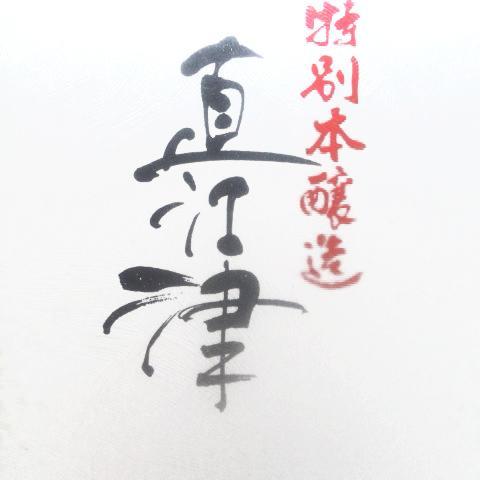 特別本醸造
直江津